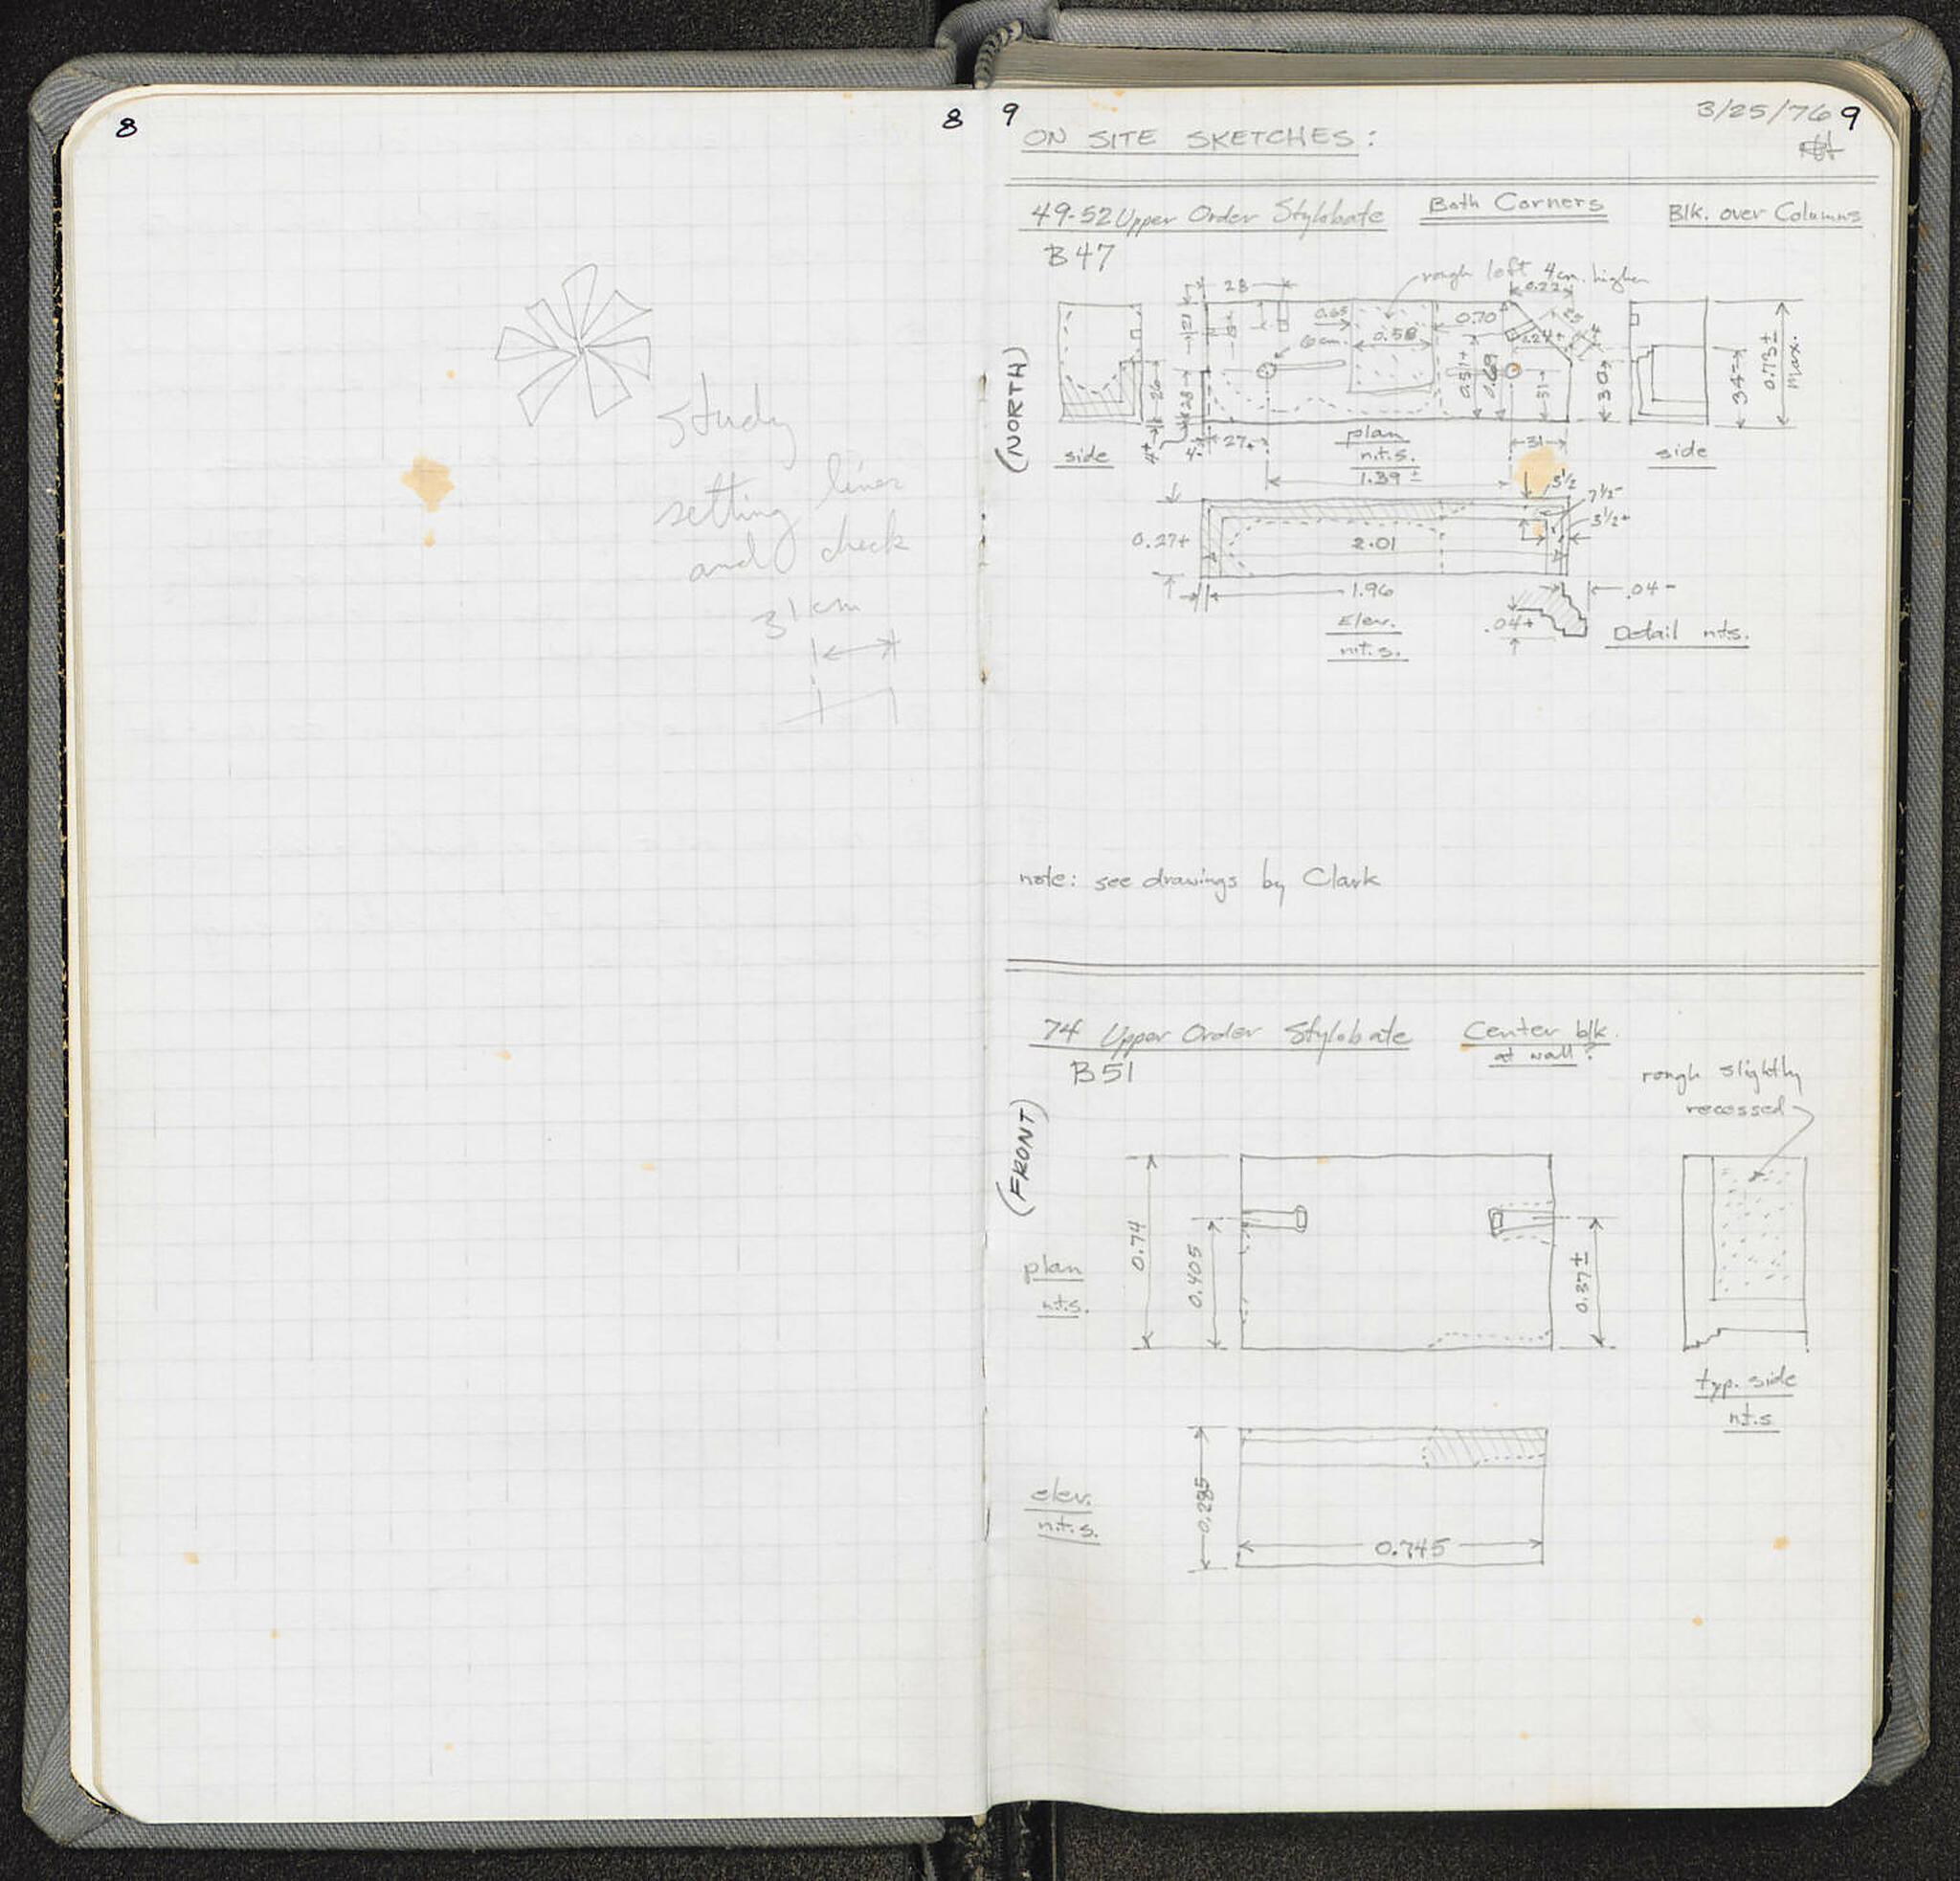 8
8
Study
setting lines
and check
31 cm
9
3/25/76 9
ON SITE SKETCHES:
49-52 Upper Order Stylobate
Both Corners
Blk. over Columns
B47
rough left 4cm. higher
(NORTH)
28
0.22
21
0.65
0.58
0.70
6cm.
0.51+
0.69
31
30
34
0.73±
Max.
26
28
4+
4
27+
side
plan
n.t.s.
1.39±
31
side
3½
7½-
3½+
0.27+
2.01
1.96
.04-
.04+
Elev.
n.t.s.
Detail nts.
note: see drawings by Clark
74 Upper Order Stylobate
Center blk.
at wall?
B51
rough slightly
recessed
(FRONT)
plan
n.t.s.
0.74
0.405
0.37±
typ. side
n.t.s
elev.
n.t.s.
0.285
0.745